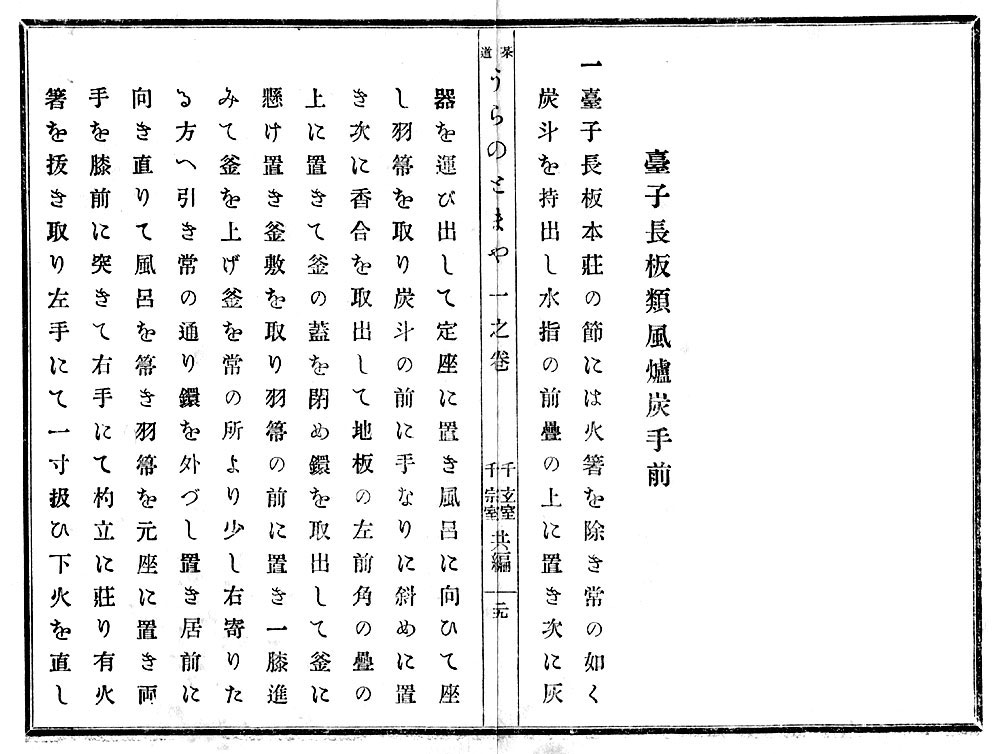 臺子長板類風爐炭手前
一臺子長板本莊の節には火箸を除き常の如く
炭斗を持出し水指の前疊の上に置き次に灰
茶道
うらのとまや 一之卷
千玄室
千宗室
共編
元
器を運び出して定座に置き風呂に向ひて座
し羽箒を取り炭斗の前に手なりに斜めに置
き次に香合を取出して地板の左前角の疊の
上に置きて釜の蓋を閉め鐶を取出して釜に
懸け置き釜敷を取り羽箒の前に置き一膝進
みて釜を上げ釜を常の所より少し右寄りた
る方へ引き常の通り鐶を外づし置き居前に
向き直りて風呂を箒き羽箒を元座に置き兩
手を膝前に突きて右手にて杓立に莊り有火
箸を拔き取り左手にて一寸扱ひ下火を直し